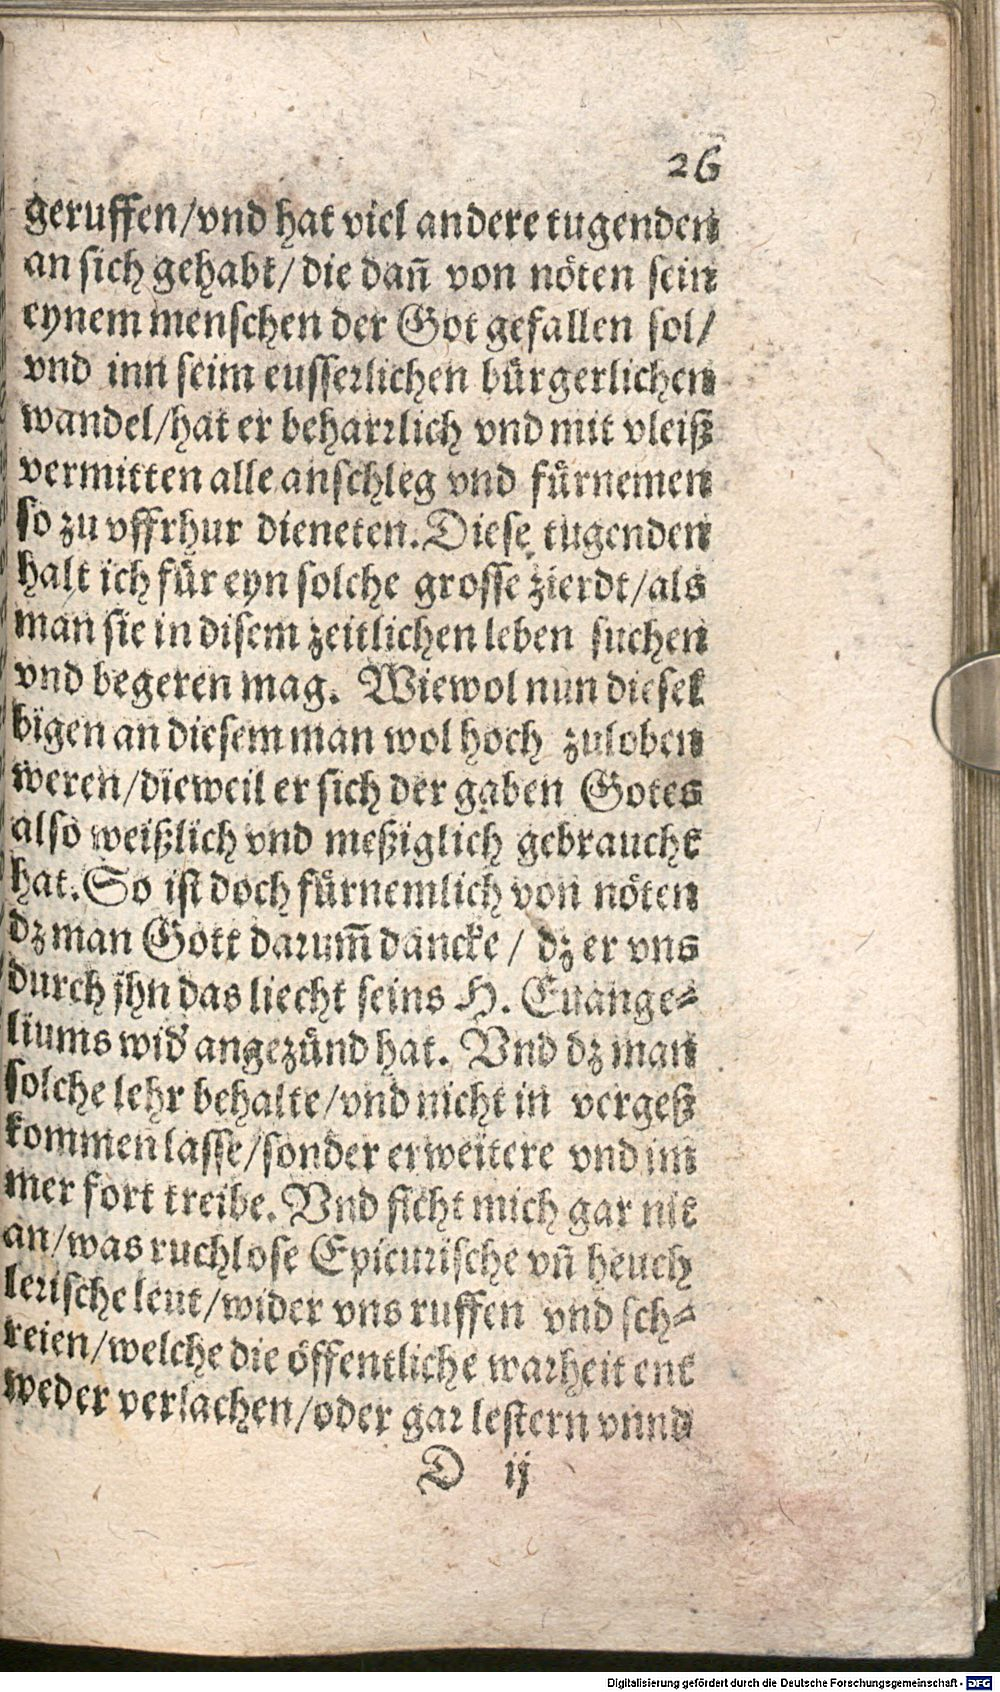 26
geruffen/vnd hat viel andere tugenden
an sich gehabt/ die dañ von nöten sein
eynem menschen der Got gefallen sol/
vnd inn seim eusserlichen bürgerlichen
wandel/hat er beharrlich vnd mit vleiß
vermitten alle anschleg vnd fürnemen
so zu vffrhur dieneten. Diese tugenden
halt ich für eyn solche grosse zierdt/als
man sie in disem zeitlichen leben suchen
vnd begeren mag. Wiewol nun diesel
bigen an diesem man wol hoch zuloben
weren/dieweil er sich der gaben Gotes
also weißlich vnd meßiglich gebraucht
hat. So ist doch fürnemlich von nöten
dz man Gott darum̃ dancke / dz er vns
durch jhn das liecht seins H. Euange⸗
liums wid' angezünd hat. Vnd dz man
solche lehr behalte/vnd nicht in vergeß
kommen lasse/sonder erweitere vnd im
mer fort treibe. Vnd ficht mich gar nit
an/was ruchlose Epicurische vñ heuch
lerische leut/wider vns ruffen vnd sch⸗
reien/welche die öffentliche warheit ent
weder verlachen/oder gar lestern vnnd
D ij
Digitalisierung gefördert durch die Deutsche Forschungsgemeinschaft - DFG